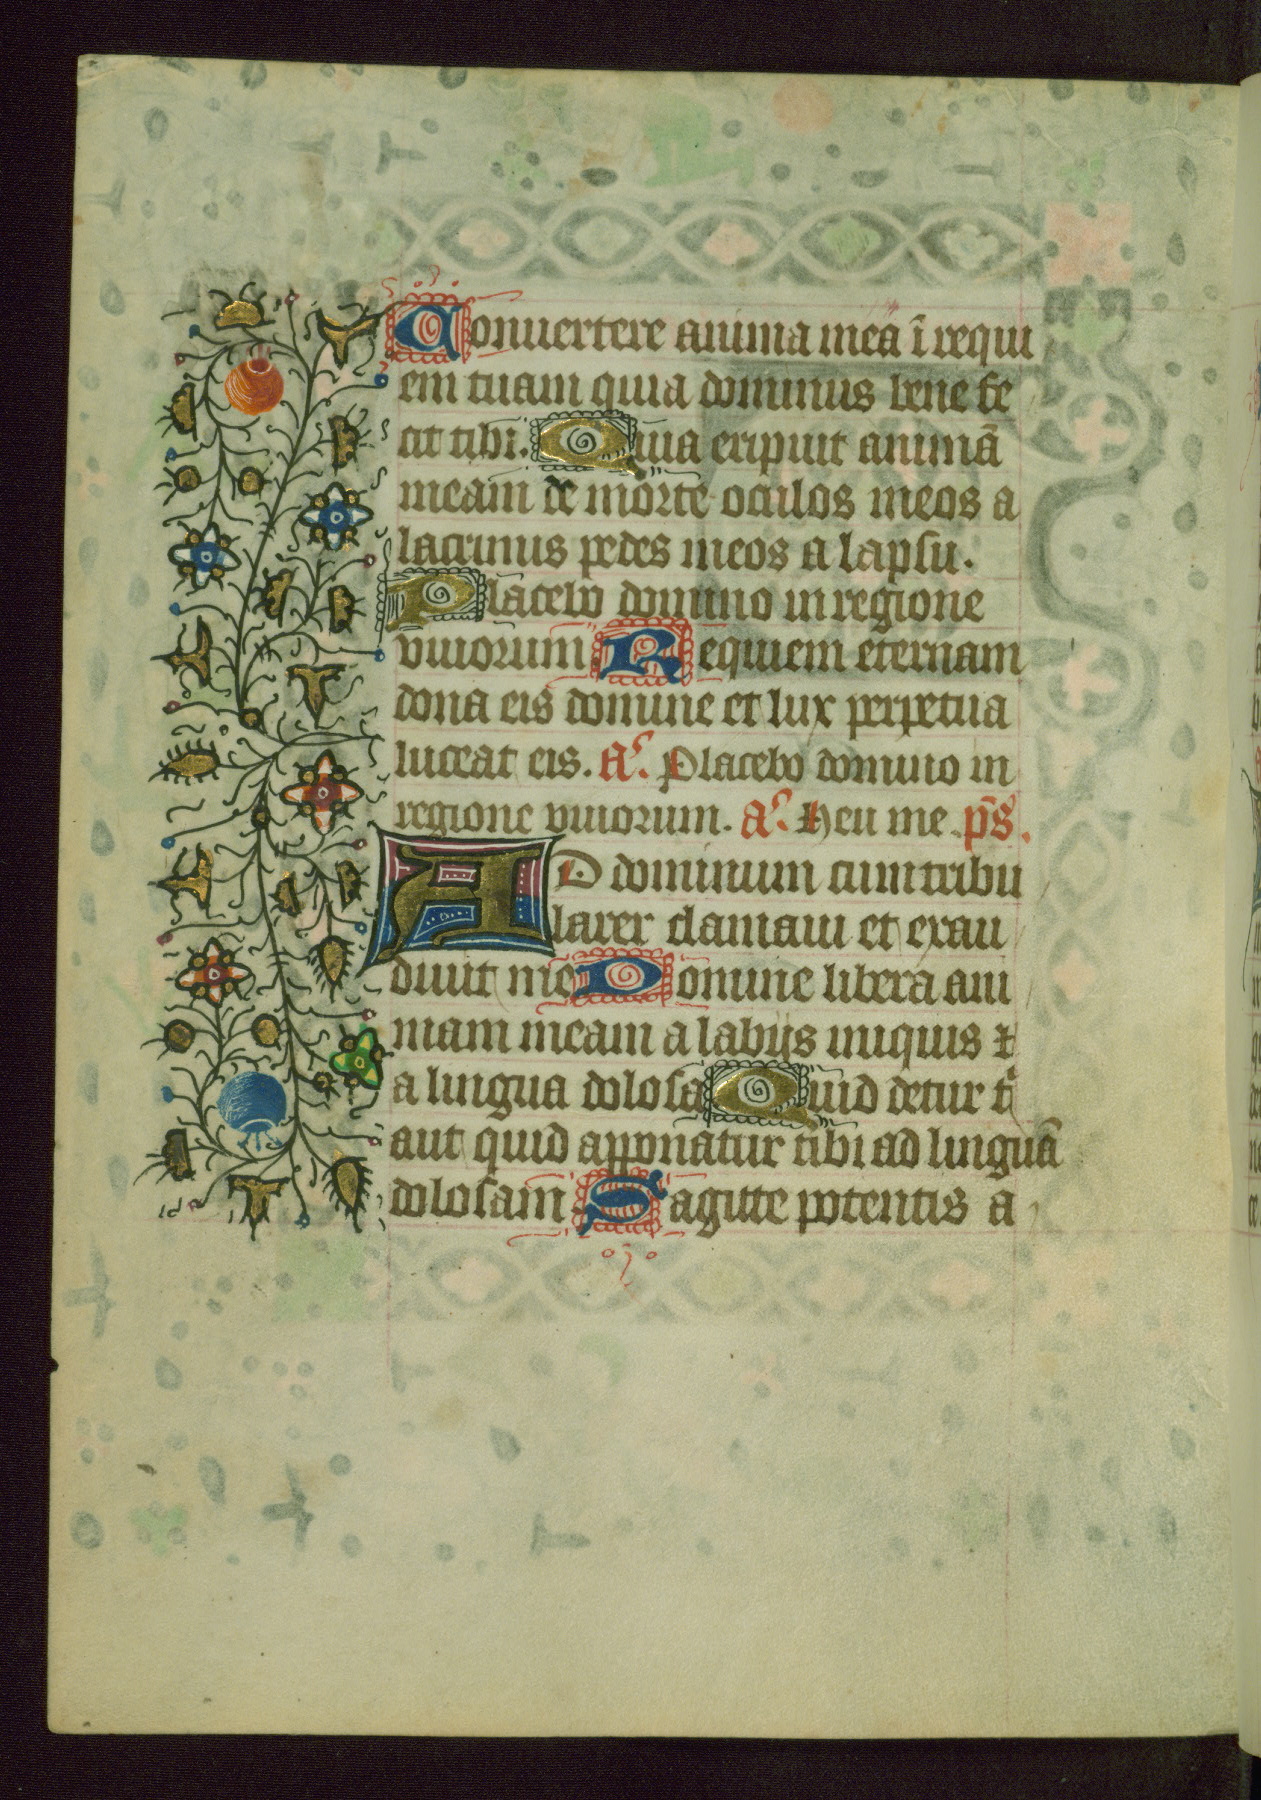 Conuertere anima mea ī requi
em tuam quia dominus bene fe
cit tibi. Quia eripuit animā
meam de morte oculos meos a
lacrimis pedes meos a lapsu.
Placebo domino in regione
viuorum Requiem eternam
dona eis domine et lux perpetua
luceat eis. A͛. Placebo domino in
regione viuorum. a͛. Heu me. p̄s.
AD dominum cum tribu
larer clamaui et exau
diuit me Domine libera ani
mam meam a labijs iniquis ⁊
a lingua dolosa Quid detur tͥ
aut quid apponatur tibi ad linguā
dolosam. Sagitte potentis a